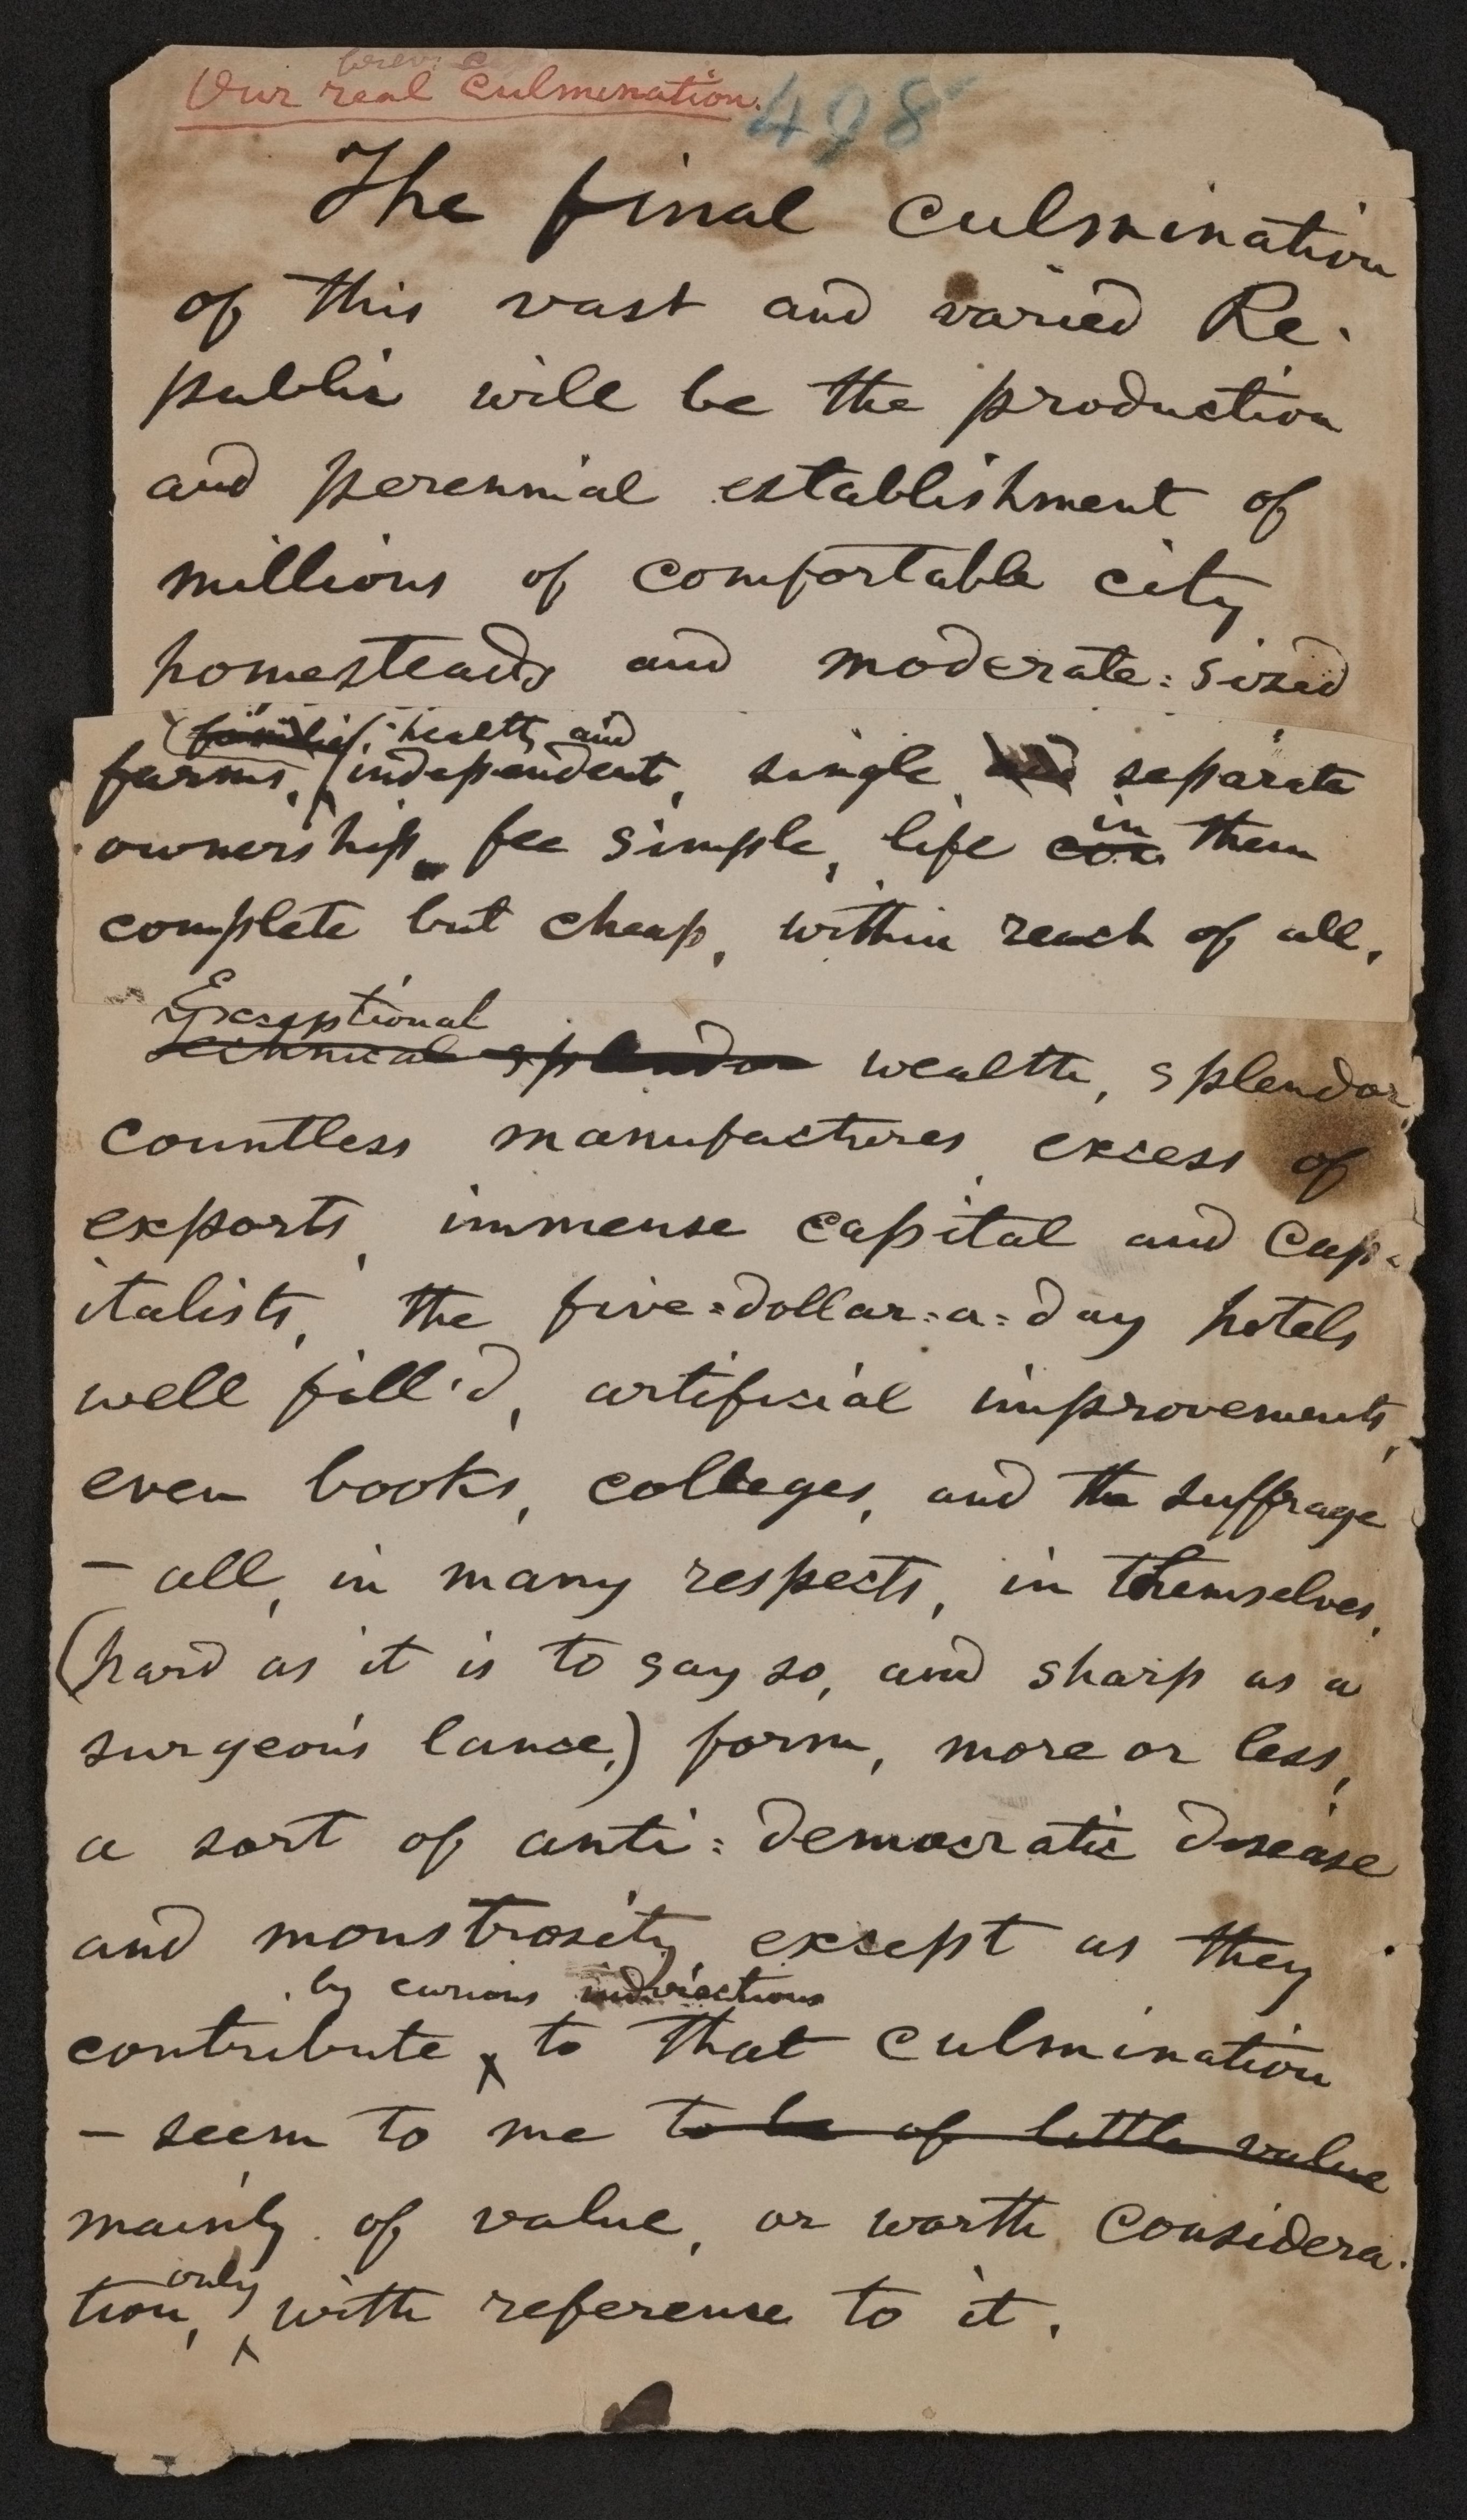 Our real culmination.
498
The final culmination
of this vast and varied Re-
public will be the production
and perennial establishment of
millions of comfortable city
homesteads and moderate-sized
families, healthy and
farms, independent, single and separate
ownership, fee simple, life in them
complete but cheap, within reach of all.
Exceptional
technical splendor wealth, splendor,
countless manufactures, excess of
exports, immense capital and cap-
italists, the five-dollar-a-day hotels
well fill'd, artificial improvements,
even books, colleges, and the suffrage
— all, in many respects, in themselves,
(hard as it is to say so, and sharp as a
surgeon's lance,) form, more or less,
a sort of anti-democratic disease
and monstrosity, except as they
by curious indirections
contribute to that culmination
— seem to me to be of little value
mainly of value, or worth considera-
only
tion, with reference to it.